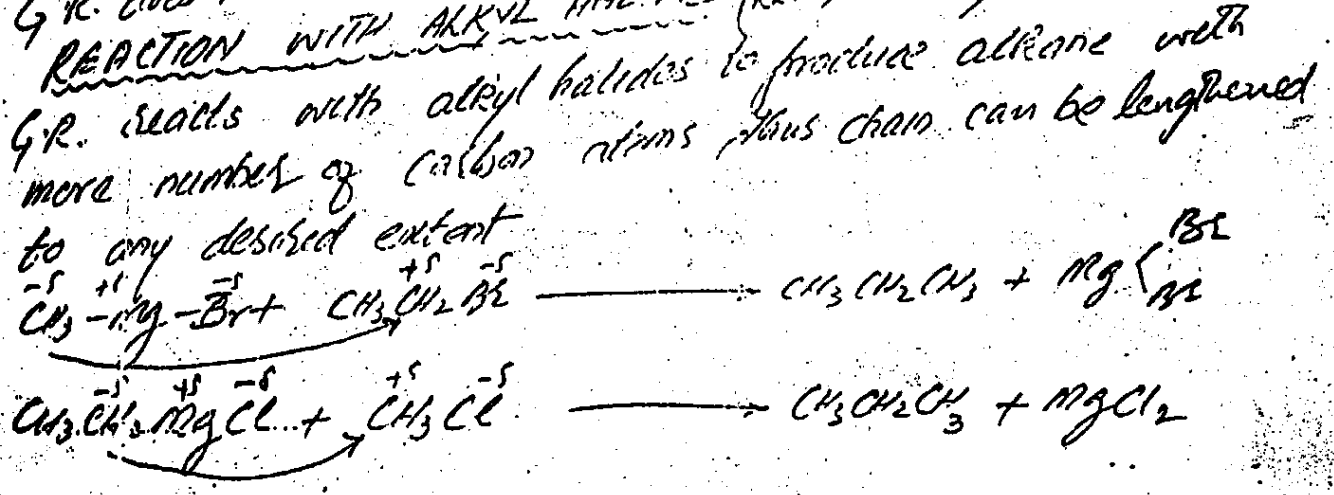 G.R.
REACTION WITH ALKYL
G.R. reacts with alkyl halides to produce alkane with
more number of carbon atoms, thus chain can be lengthened
to any desired extent
-δ +δ -δ +δ -δ Br
CH3 - Mg - Br + CH3 CH2 Br → CH3 CH2 CH3 + Mg Br
-δ +δ -δ +δ -δ
CH3 CH2 Mg Cl + CH3 Cl → CH3 CH2 CH3 + MgCl2